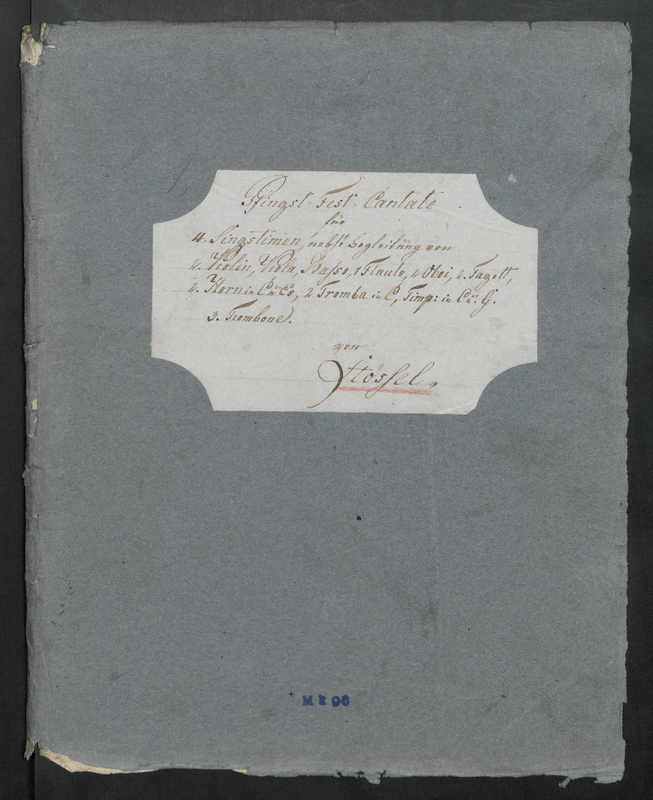 Pfingst-Fest-Cantate
für
4. Singstimen, nebst begleitung von
2. Violin, Viola, Basso, 1 Flauto, 2 Oboi, 2. Fagott,
2. Horn in C u: Es, 2 Tromba in C, Timp: in C u: G.
3. Trombone.
von
Hössel.
M E 96